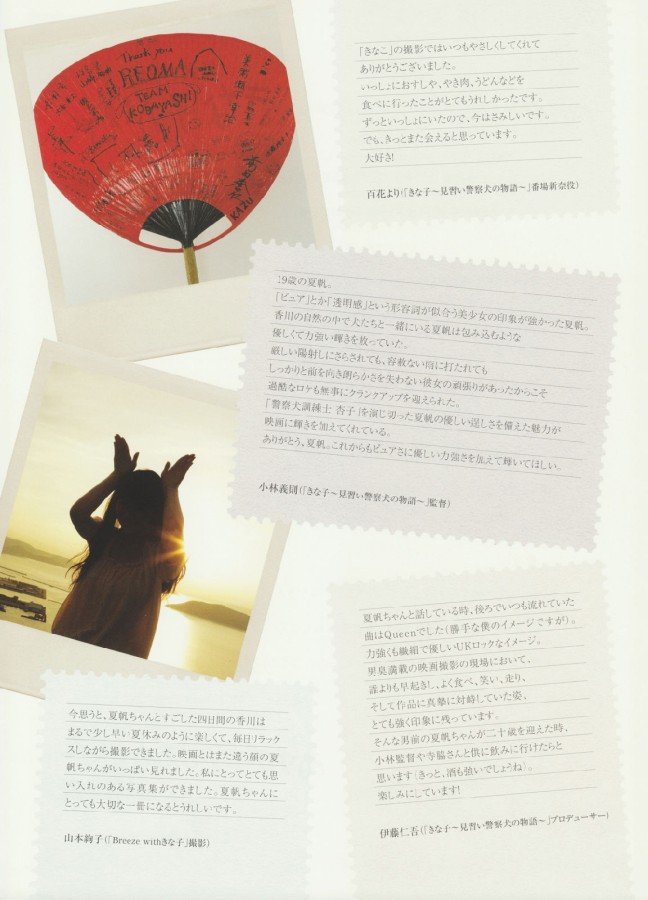 Thank you
REOMA
TEAM
KOBAYASHI
KAZU
「きなこ」の撮影ではいつもやさしくしてくれて
ありがとうございました。
いっしょにおすしや、やき肉、うどんなどを
食べに行ったことがとてもうれしかったです。
ずっといっしょにいたので、今はさみしいです。
でも、きっとまた会えると思っています。
大好き!
百花より(「きな子〜見習い警察犬の物語〜」番場新奈役)
19歳の夏帆。
「ピュア」とか「透明感」という形容詞が似合う美少女の印象が強かった夏帆。
香川の自然の中で犬たちと一緒にいる夏帆は包み込むような
優しくて力強い輝きを放っていた。
厳しい陽射しにさらされても、容赦ない雨に打たれても
しっかりと前を向き朗らかさを失わない彼女の頑張りがあったからこそ
過酷なロケも無事にクランクアップを迎えられた。
「警察犬訓練士 杏子」を演じ切った夏帆の優しい逞しさを備えた魅力が
映画に輝きを加えてくれている。
ありがとう、夏帆。これからもピュアさに優しい力強さを加えて輝いてほしい。
小林義則(「きな子〜見習い警察犬の物語〜」監督)
夏帆ちゃんと話している時、後ろでいつも流れていた
曲はQueenでした(勝手な僕のイメージですが)。
力強くも繊細で優しいUKロックなイメージ。
男臭満載の映画撮影の現場において、
誰よりも早起きし、よく食べ、笑い、走り、
そして作品に真摯に対峙していた姿、
とても強く印象に残っています。
そんな男前の夏帆ちゃんが二十歳を迎えた時、
小林監督や寺脇さんと供に飲みに行けたらと
思います(きっと、酒も強いでしょうね)。
楽しみにしています!
伊藤仁吾(「きな子〜見習い警察犬の物語〜」プロデューサー)
今思うと、夏帆ちゃんとすごした四日間の香川は
まるで少し早い夏休みのように楽しくて、毎日リラック
スしながら撮影できました。映画とはまた違う顔の夏
帆ちゃんがいっぱい見れました。私にとってとても思
い入れのある写真集ができました。夏帆ちゃんに
とっても大切な一冊になるとうれしいです。
山本絢子(「Breeze withきな子」撮影)